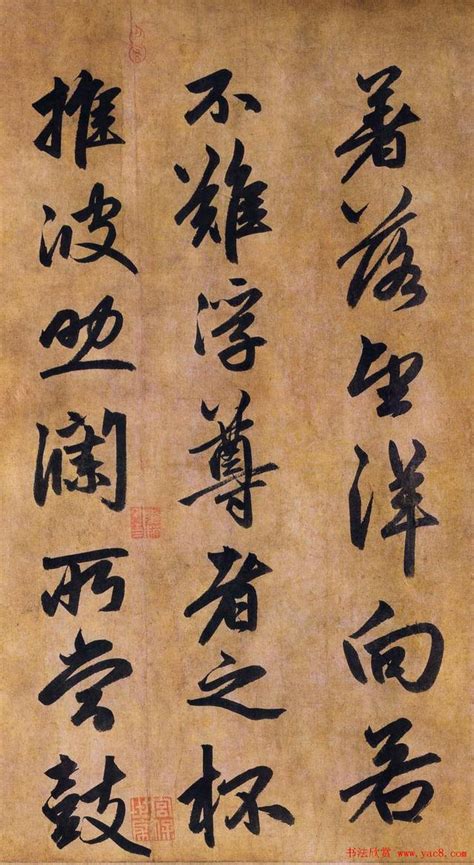 著落望洋向若
不難浮尊者之杯
推波助瀾所尝鼓
书法欣赏 www.yac8.com